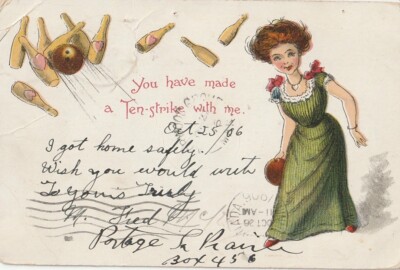 You have made
a Ten-strike with me.
Oct 25 06
I got home safely.
Wish you would write
To yours Truly
Fred
Portage la Prairie
Box 456